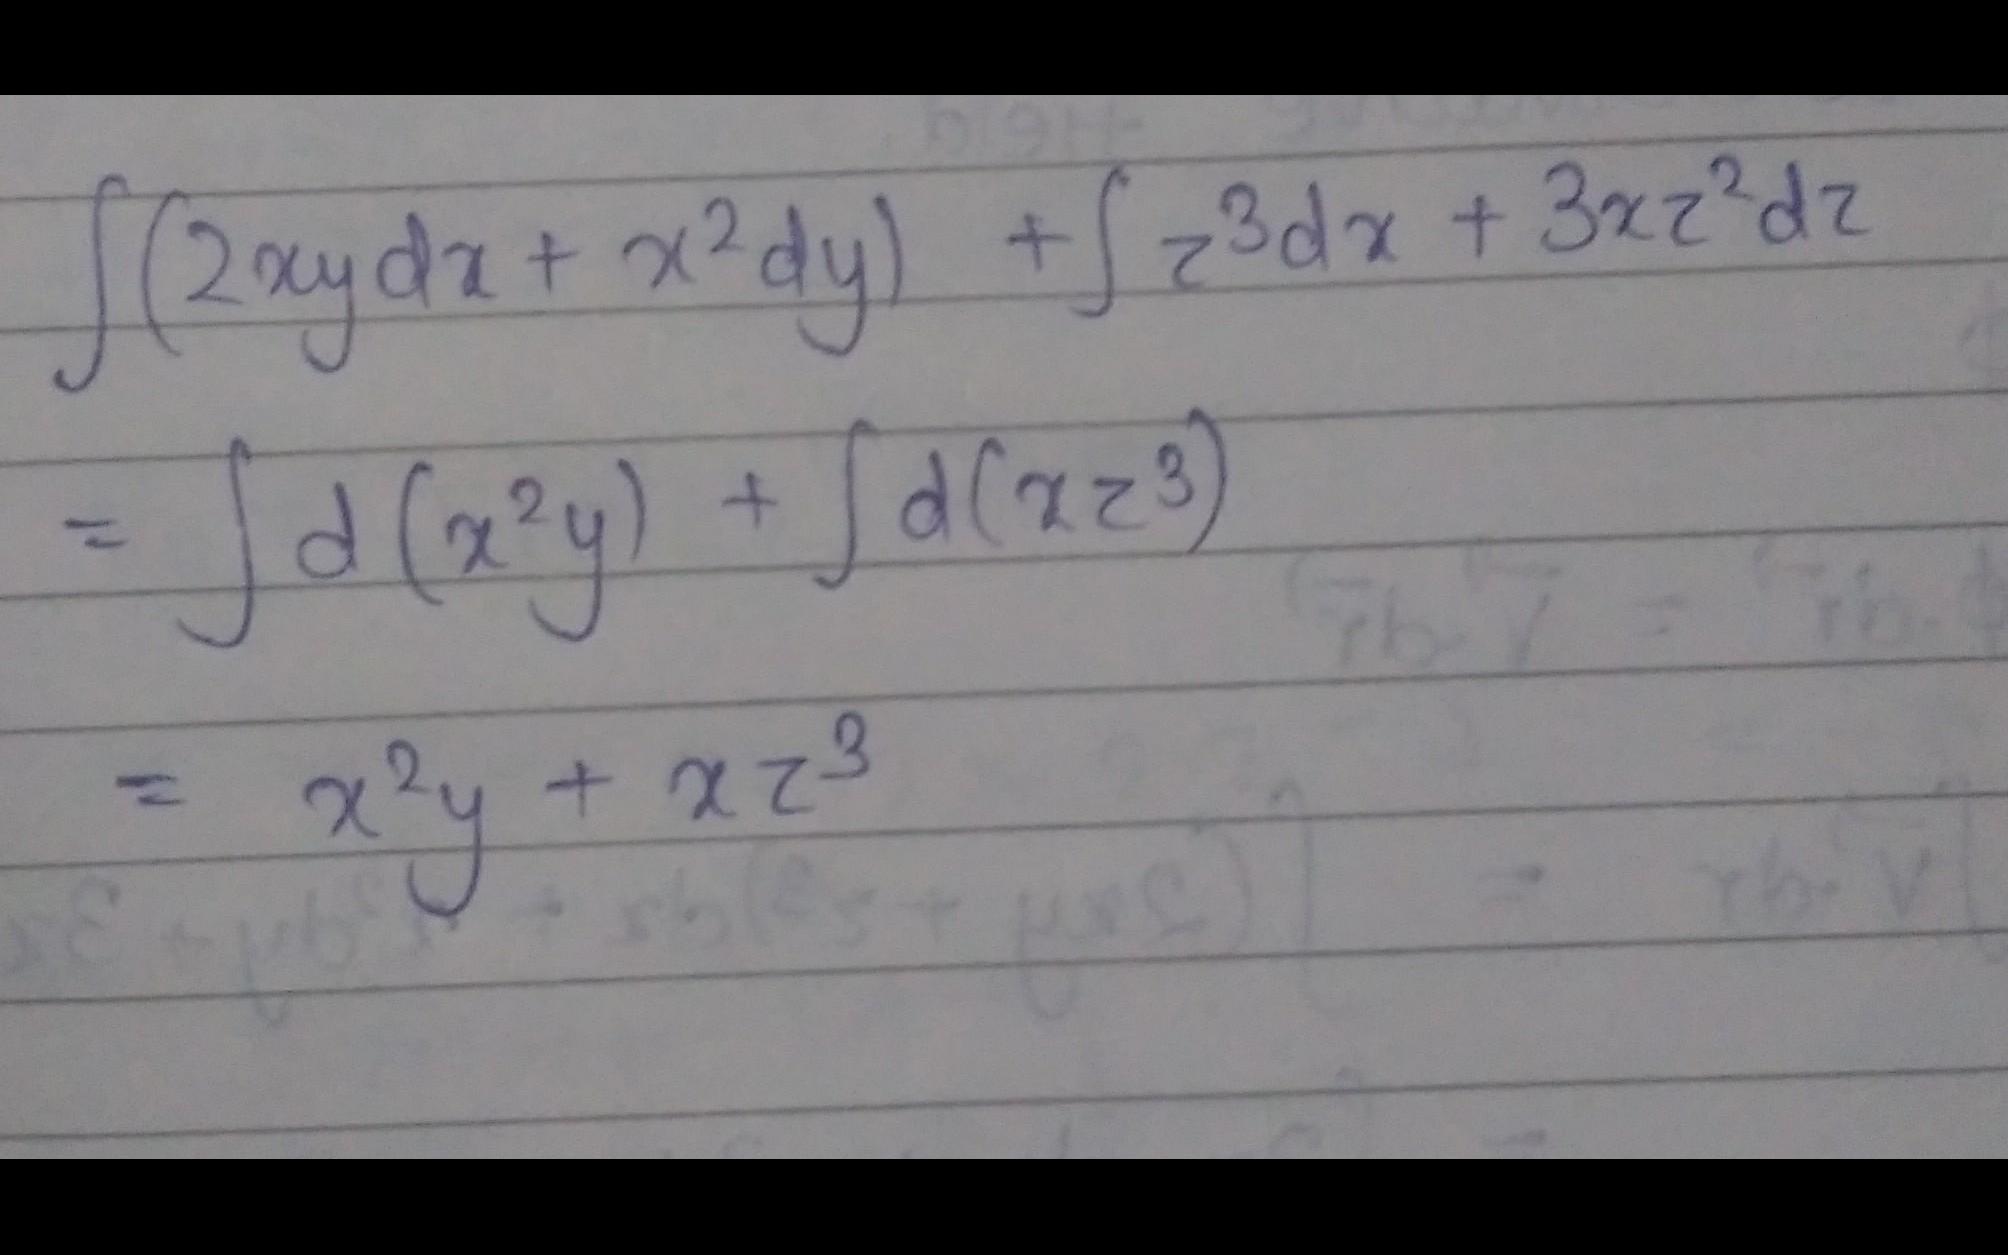 ∫(2xydx + x²dy) + ∫z³dx + 3xz²dz
= ∫d(x²y) + ∫d(xz³)
= x²y + xz³